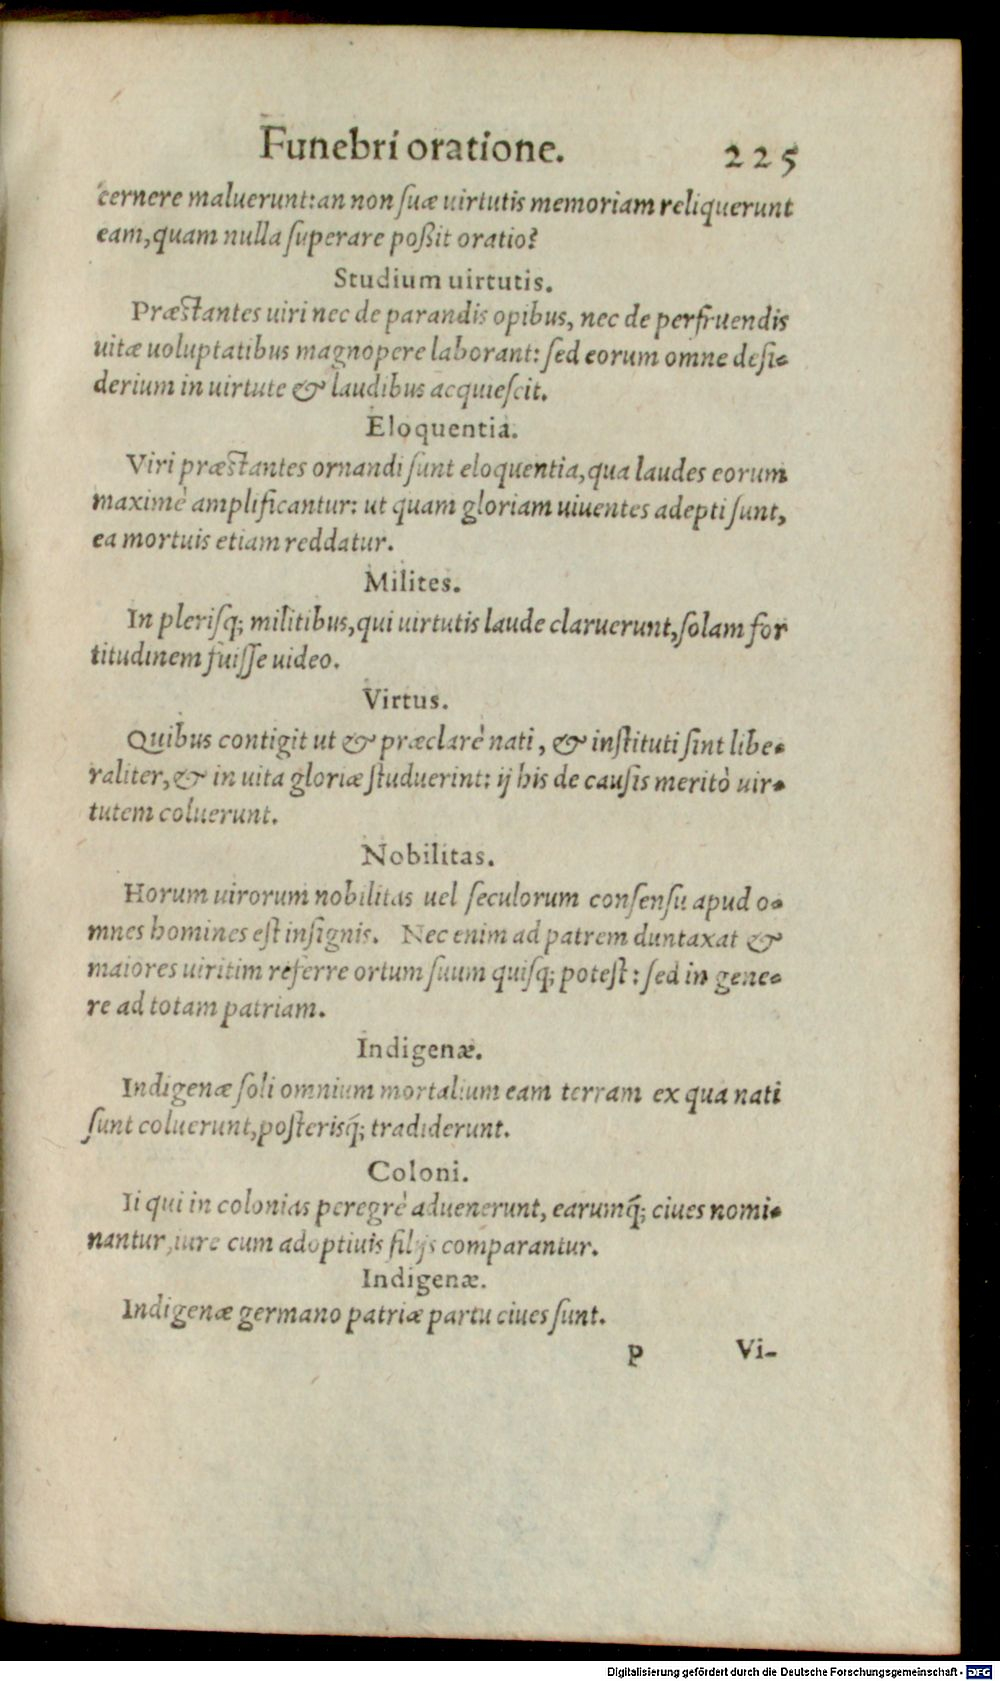 Funebri oratione. 225
cernere maluerunt: an non ſuæ uirtutis memoriam reliquerunt
eam, quam nulla ſuperare poßit oratio?
Studium uirtutis.
Præſtantes uiri nec de parandis opibus, nec de perfruendis
uitæ uoluptatibus magnopere laborant: ſed eorum omne deſi-
derium in uirtute & laudibus acquieſcit.
Eloquentia.
Viri præſtantes ornandi ſunt eloquentia, qua laudes eorum
maximè amplificantur: ut quam gloriam uiuentes adepti ſunt,
ea mortuis etiam reddatur.
Milites.
In pleriſq; militibus, qui uirtutis laude claruerunt, ſolam for
titudinem fuiſſe uideo.
Virtus.
Quibus contigit ut & præclarè nati, & inſtituti ſint libe-
raliter, & in uita gloriæ ſtuduerint: ij his de cauſis meritò uir-
tutem coluerunt.
Nobilitas.
Horum uirorum nobilitas uel ſeculorum conſenſu apud o-
mnes homines eſt inſignis. Nec enim ad patrem duntaxat &
maiores uiritim referre ortum ſuum quiſq; poteſt: ſed in gene-
re ad totam patriam.
Indigenæ.
Indigenæ ſoli omnium mortalium eam terram ex qua nati
ſunt coluerunt, poſterisq́; tradiderunt.
Coloni.
Ii qui in colonias peregrè aduenerunt, earumq́; ciues nomi-
nantur, iure cum adoptiuis filijs comparantur.
Indigenæ.
Indigenæ germano patriæ partu ciues ſunt.
p Vi-
Digitalisierung gefördert durch die Deutsche Forschungsgemeinschaft - DFG